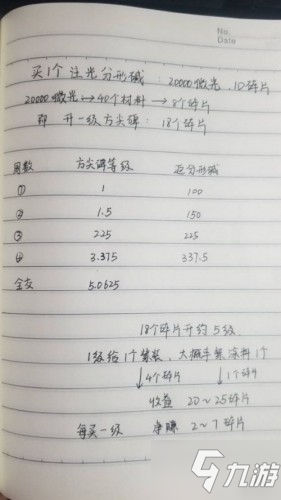 No.
Date
买1个注光分形碱：20000微光，10碎片
20000微光→40个材料→8个碎片
即 升一级方尖碑：18个碎片
周数 方尖碑等级 返分形碱
① 1 100
② 1.5 150
③ 2.25 225
④ 3.375 337.5
全支 5.0625
18个碎片开约5级
1级给1个紫装，大概率紫涂料1个
↓4个碎片 ↓1个碎片
收益 20～25碎片
每买一级 净赚 2～7碎片
九游